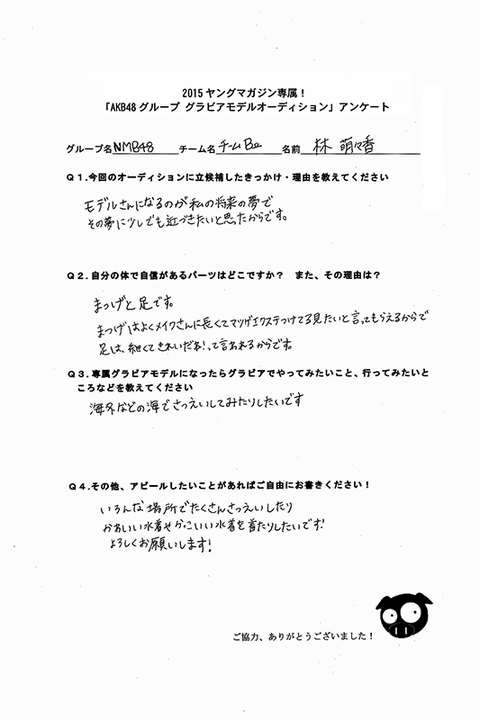 2015ヤングマガジン専属！
「AKB48グループ グラビアモデルオーディション」アンケート
グループ名NMB48 チーム名チームBII 名前 林 萌々香
Q1.今回のオーディションに立候補したきっかけ・理由を教えてください
モデルさんになるのが私の将来の夢で
その夢に少しでも近づきたいと思ったからです。
Q2.自分の体で自信があるパーツはどこですか？ また、その理由は？
まつげと足です。
まつげはよくメイクさんに長くてマツゲエクステつけてる見たいと言ってもらえるからで
足は、細くてきれいだね!って言われるからです。
Q3.専属グラビアモデルになったらグラビアでやってみたいこと、行ってみたいと
ころなどを教えてください
海外などの海でさつえいしてみたりしたいです
Q4.その他、アピールしたいことがあればご自由にお書きください！
いろんな場所でたくさんさつえいしたり
かわいい水着やかっこいい水着を着たりしたいです!
よろしくお願いします!
ご協力、ありがとうございました！